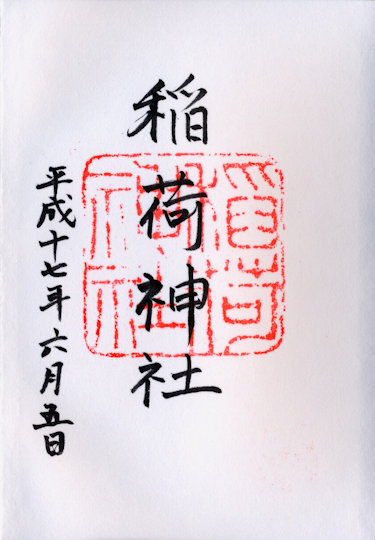 稲荷神社
平成十七年六月五日